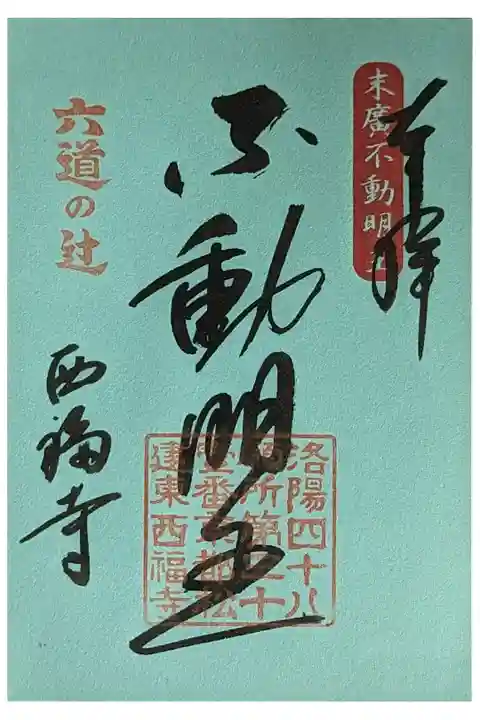 奉拝
末廣不動明王
不動明王
洛陽四十八
所第二十
壹番京都松
東西福寺
六道の辻
西福寺